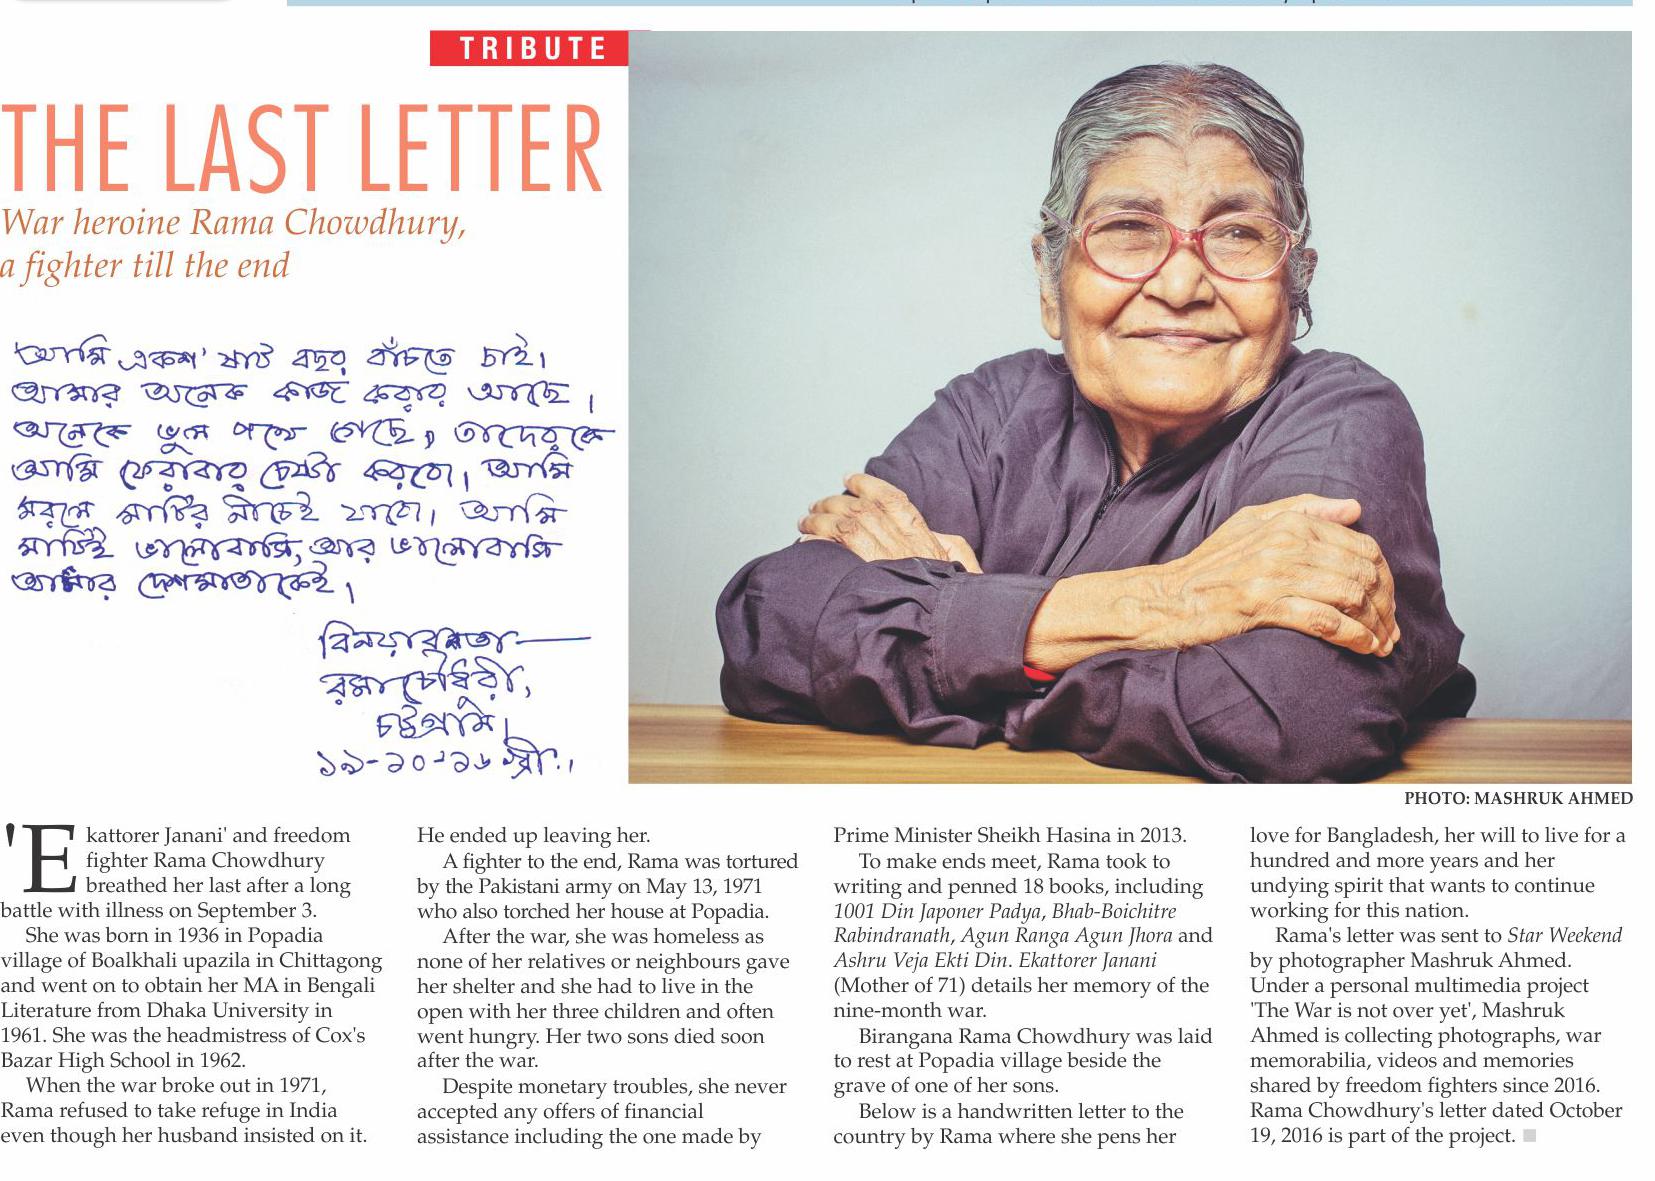 TRIBUTE
THE LAST LETTER
War heroine Rama Chowdhury,
a fighter till the end
'আমি একশ' ষাট বছর বাঁচতে চাই।
আমার অনেক কাজ করার আছে।
অনেকে ভুল পথে গেছে, তাদেরকে
আমি ফেরাবার চেষ্টা করবো। আমি
মরলে মাটির নীচেই যাবো। আমি
মাটিই ভালোবাসি, আর ভালোবাসি
আমার দেশমাতাকেই।
বিনয়াবনতা—
রমা চৌধুরী,
চট্টগ্রাম।
১৯-১০-১৬ খ্রী:।
PHOTO: MASHRUK AHMED
'Ekattorer Janani' and freedom
fighter Rama Chowdhury
breathed her last after a long
battle with illness on September 3.
She was born in 1936 in Popadia
village of Boalkhali upazila in Chittagong
and went on to obtain her MA in Bengali
Literature from Dhaka University in
1961. She was the headmistress of Cox's
Bazar High School in 1962.
When the war broke out in 1971,
Rama refused to take refuge in India
even though her husband insisted on it.
He ended up leaving her.
A fighter to the end, Rama was tortured
by the Pakistani army on May 13, 1971
who also torched her house at Popadia.
After the war, she was homeless as
none of her relatives or neighbours gave
her shelter and she had to live in the
open with her three children and often
went hungry. Her two sons died soon
after the war.
Despite monetary troubles, she never
accepted any offers of financial
assistance including the one made by
Prime Minister Sheikh Hasina in 2013.
To make ends meet, Rama took to
writing and penned 18 books, including
1001 Din Japoner Padya, Bhab-Boichitre
Rabindranath, Agun Ranga Agun Jhora and
Ashru Veja Ekti Din. Ekattorer Janani
(Mother of 71) details her memory of the
nine-month war.
Birangana Rama Chowdhury was laid
to rest at Popadia village beside the
grave of one of her sons.
Below is a handwritten letter to the
country by Rama where she pens her
love for Bangladesh, her will to live for a
hundred and more years and her
undying spirit that wants to continue
working for this nation.
Rama's letter was sent to Star Weekend
by photographer Mashruk Ahmed.
Under a personal multimedia project
'The War is not over yet', Mashruk
Ahmed is collecting photographs, war
memorabilia, videos and memories
shared by freedom fighters since 2016.
Rama Chowdhury's letter dated October
19, 2016 is part of the project.